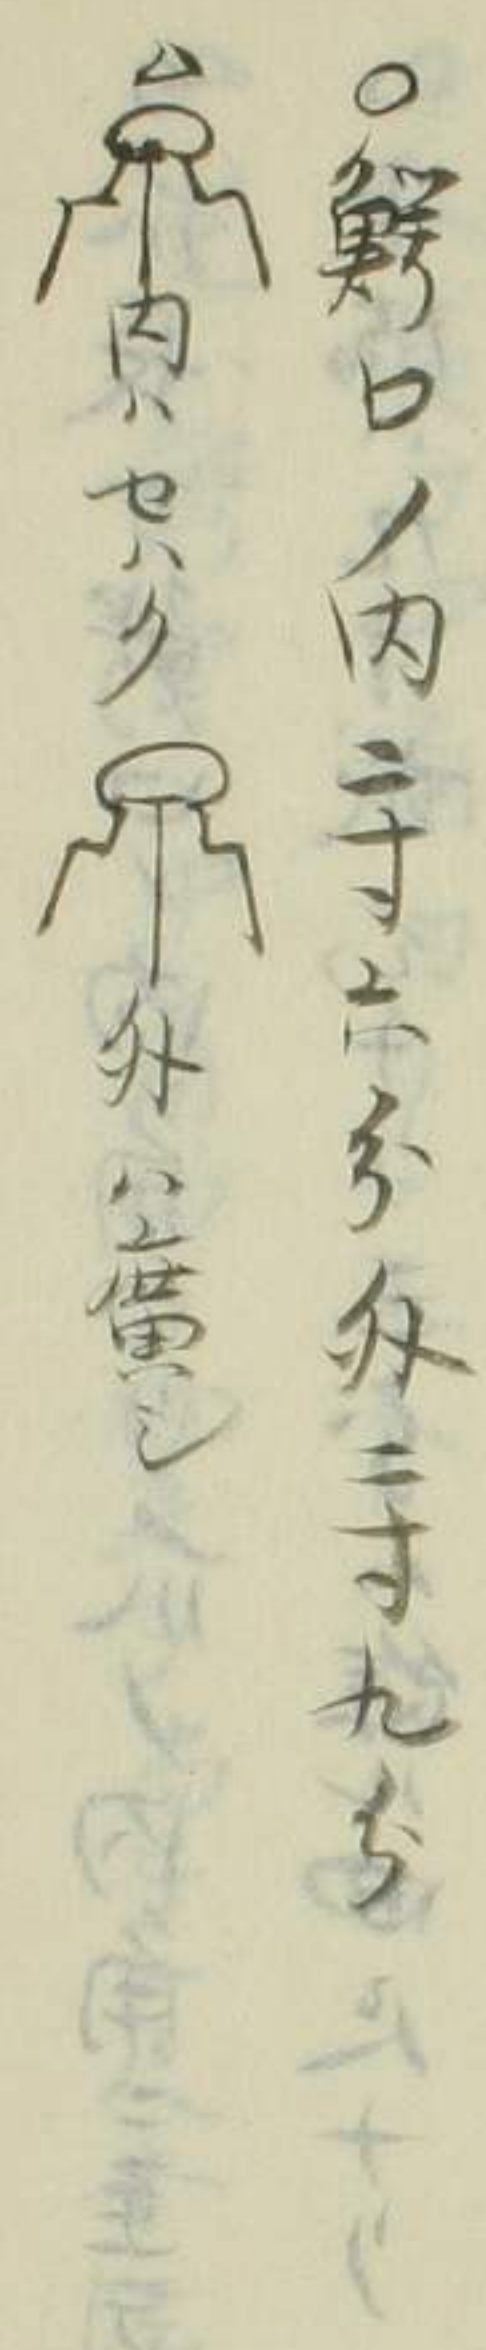 ○鰐口ノ内二寸六分外二寸九分
△内ハセハク外ハ廣シ